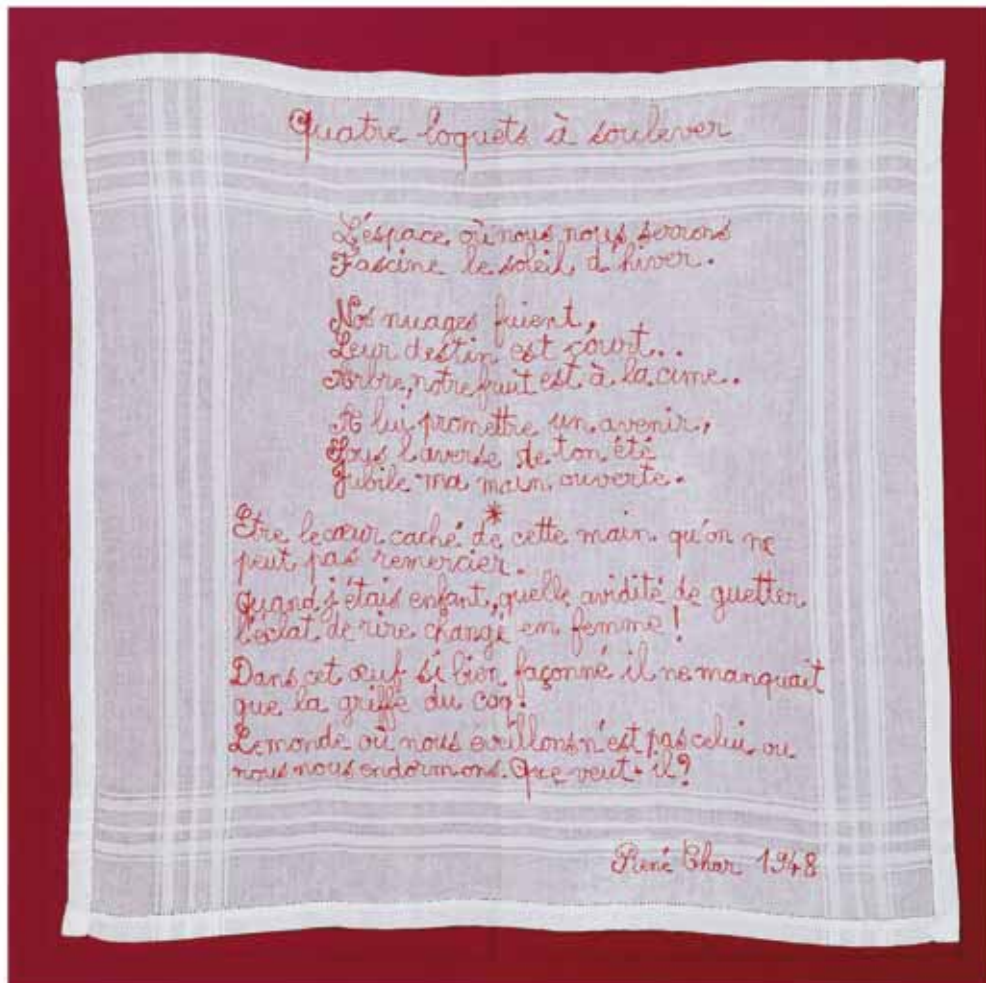 Quatre loquets à soulever
L'espace où nous nous serrons
Fascine le soleil d'hiver.
Nos nuages fuient,
Leur destin est court..
Arbre, notre fruit est à la cime..
A lui promettre un avenir,
Sous l'averse de ton été
Jubile ma main ouverte.
*
Etre le cœur caché de cette main qu'on ne
peut pas remercier.
Quand j'étais enfant, quelle avidité de guetter
l'éclat de rire changé en femme!
Dans cet œuf si bien façonné il ne manquait
que la griffe du coq.
Le monde où nous n'est pas celui ou
nous nous endormons. Que veut-il?
René Char 1948